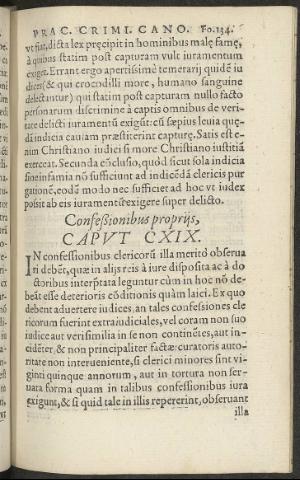 PRAC. CRIMI. CANO. Fo. 134.
vt fiat, dicta lex pręcipit in hominibus malę famę,
à quibus statim post capturam vult iuramentum
exiget. Errant ergo apertissimè temerarij quidē iu
dices (& qui crocodilli more, humano sanguine
delectantur) qui statim post capturam nullo facto
personarum discrimine à captis omnibus de veri-
tate delicti iuramentū exigūt: cū sæpius leuia quę-
dā indicia cauiam præstiterint capturę. Satis est e-
nim Christiano iudici si more Christiano iustitiā
exerceat. Secunda cōclusio, quòd sicut sola indicia
sine infamia nō sufficiunt ad indicēdā clericis pur
gationē, eodā modo nec sufficiet ad hoc vt iudex
possit ab eis iuramentū exigere super delicto.
Confeßionibus proprijs,
CAPVT CXIX.
IN confessionibus clericorū illa meritò obserua
ri debēt, quæ in alijs reis à iure disposita ac à do
ctoribus interp̄tata leguntur cùm in hoc nō de-
beāt esse deterioris cōditionis quàm laici. Ex quo
debent aduertere iudices, an tales confessiones cle
ricorum fuerint extraiudiciales, vel coram non suo
iudice aut verisimilia in se non continētes, aut in-
cidēter, & non principaliter factæ: curatoris auto-
ritate non interueniente, si clerici minores sint vi-
ginti quinque annorum, aut in tortura non ser-
uata forma quam in talibus confessionibus iura
exigunt, & si quid tale in illis repererint, obseruant
illa